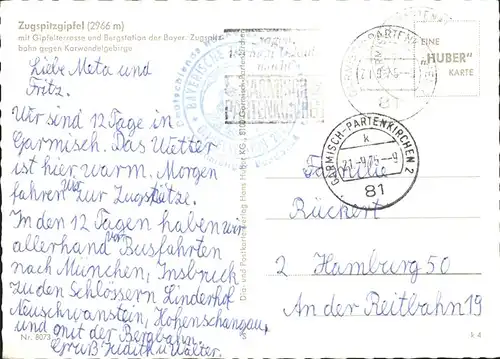 Zugspitzgipfel (2966 m)
mit Gipfelterrasse und Bergstation der Bayer. Zugspitz-
bahn gegen Karwendelgebirge
Liebe Meta und
Fritz.
Wir sind 12 Tage in
Garmisch. Das Wetter
ist hier warm. Morgen
fahren wir zur Zugspitze.
In den 12 Tagen haben wir
allerhand Busfahrten
nach München, Insbruck
zu den Schlössern Linderhof
Neuschwanstein, Hohenschwangau,
und mit der Bergbahn.
Gruß Judith u Walter.
Nr. 8073
Dia- und Postkartenverlag Hans Huber KG, 8100 Garmisch-Partenkirchen
EINE
„HUBER"
KARTE
GARMISCH-PARTENKIRCHEN
81
GARMISCH-PARTENKIRCHEN 2
k
21-9.75-9
81
Familie
Rückert
2 Hamburg 50
An der Reitbahn 19
k 4